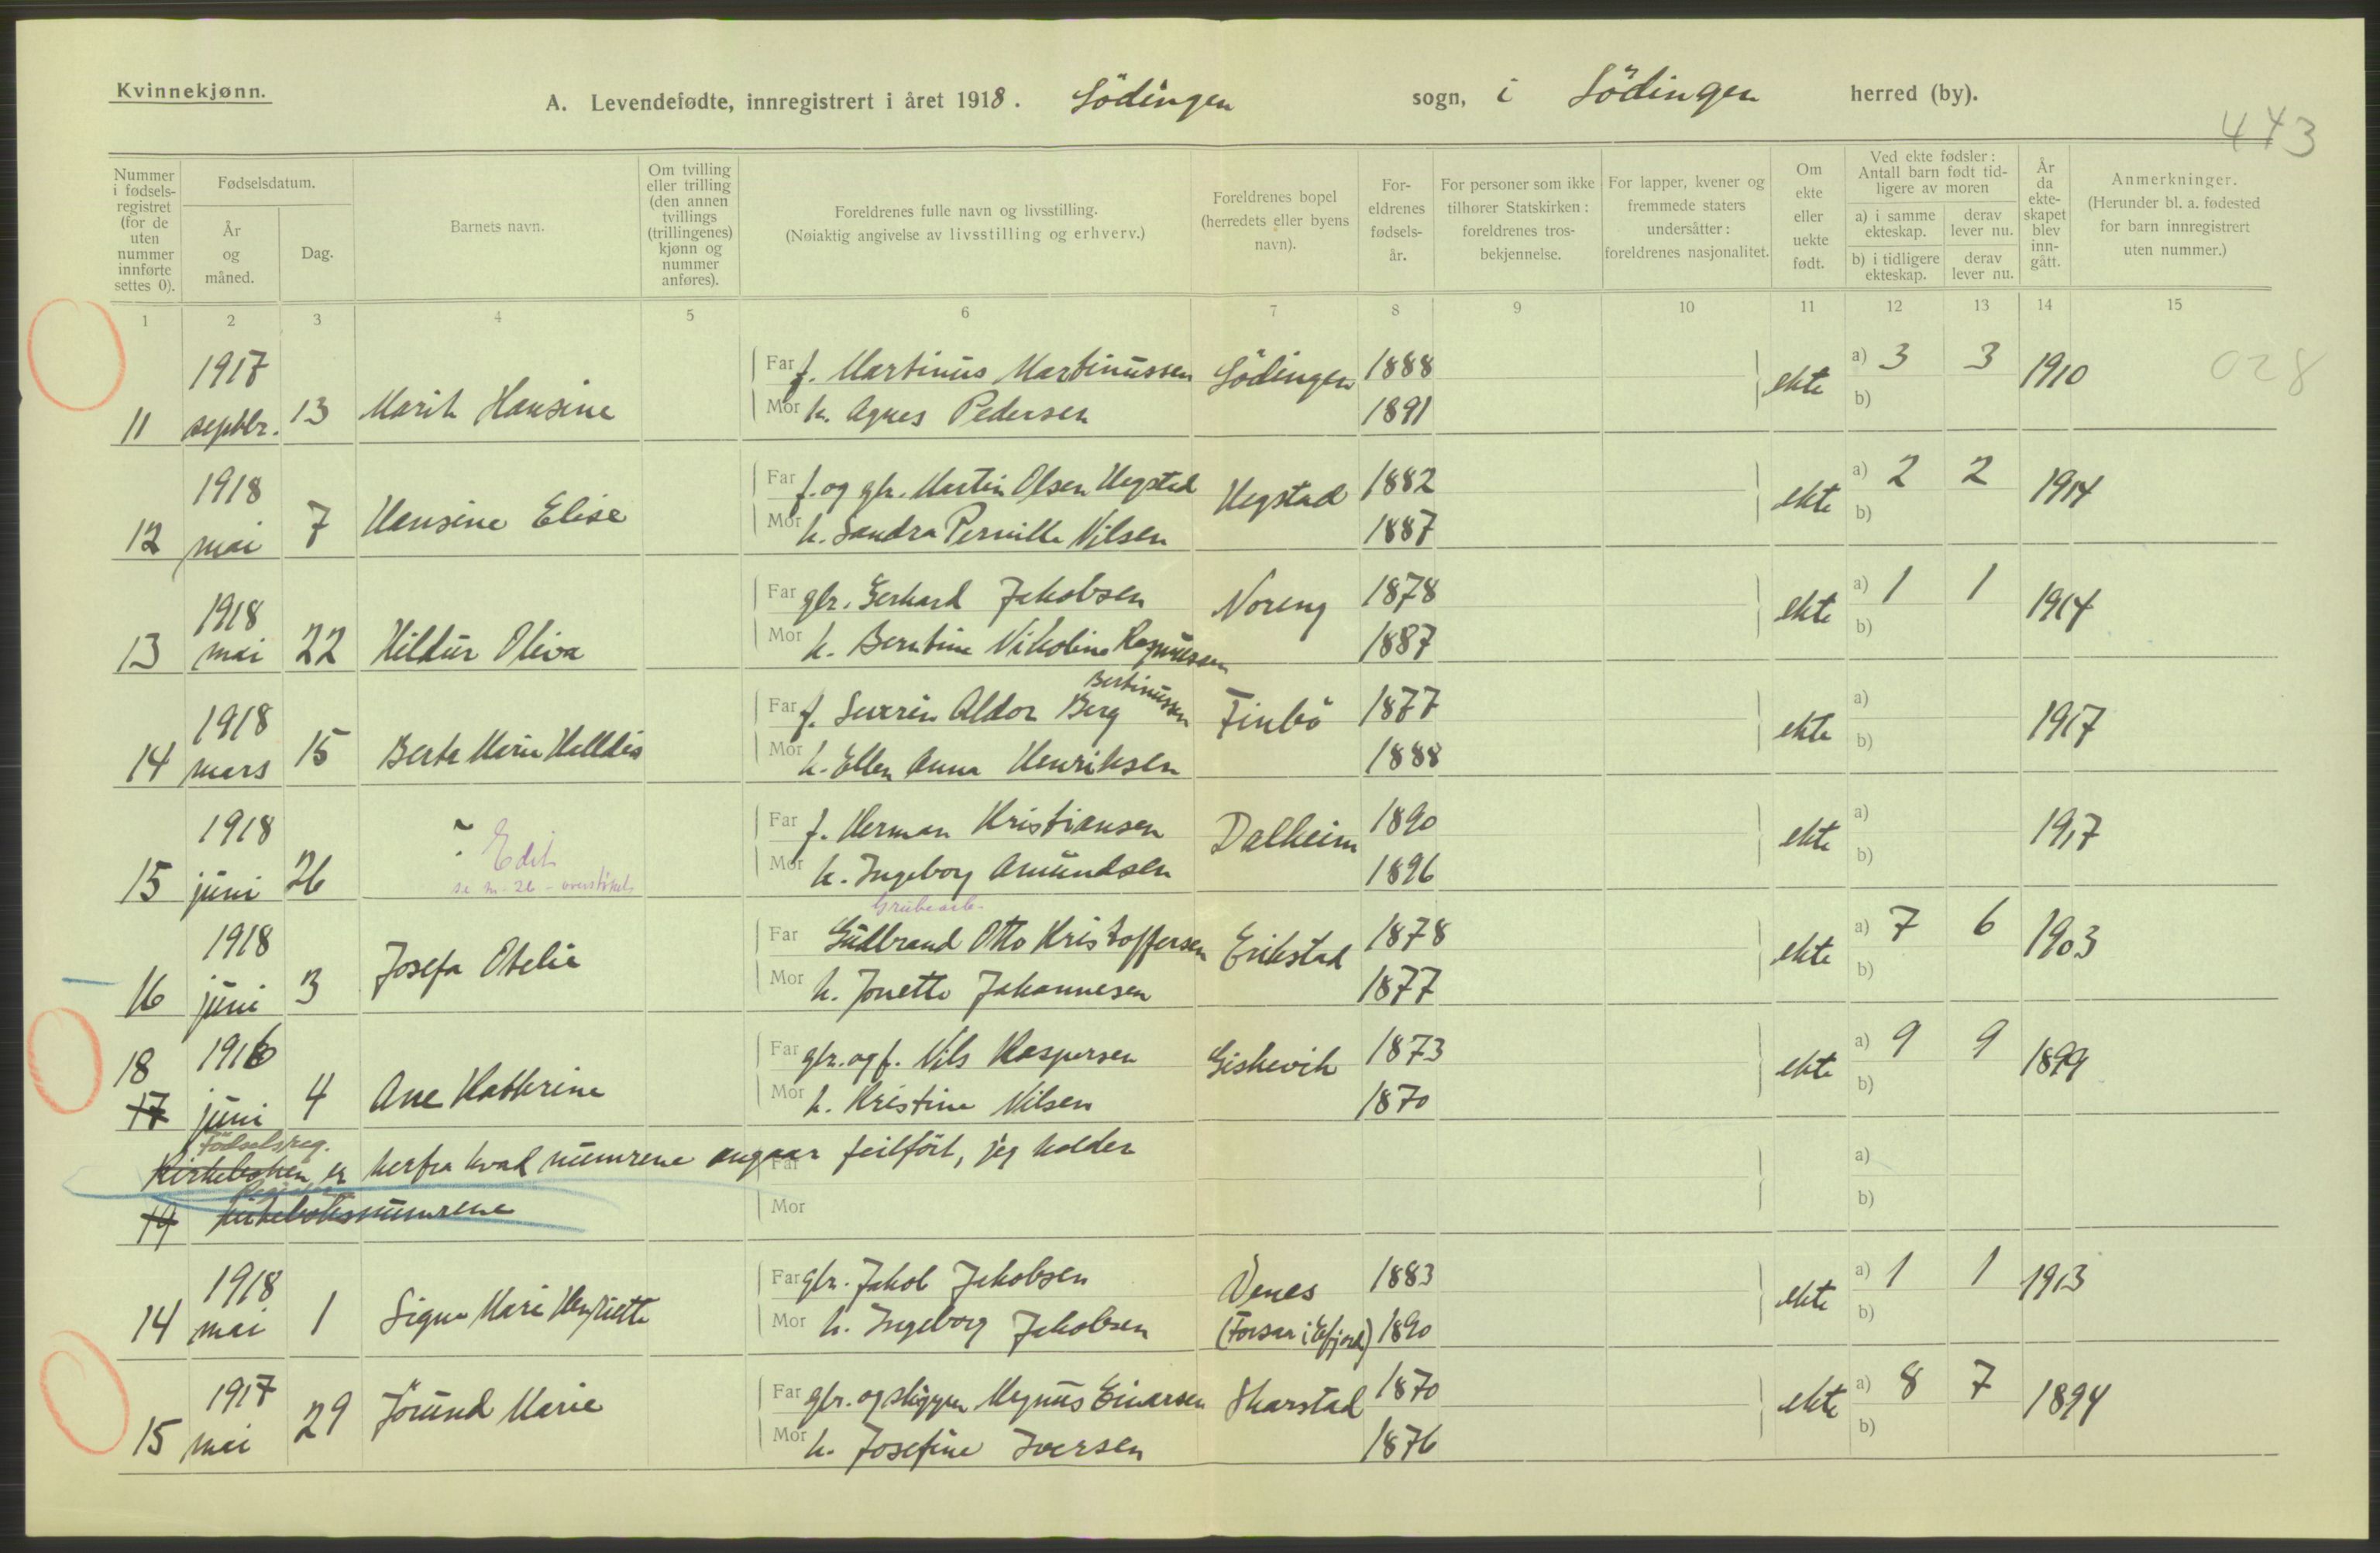 Kvinnekjønn.
A. Levendefødte, innregistrert i året 1918. Lödingen sogn, i Lödingen herred (by).
443
Nummer i fødsels-registret (for de uten nummer innførte settes 0).
Fødselsdatum.
År og måned.
Dag.
Barnets navn.
Om tvilling eller trilling (den annen tvillings (trillingenes) kjønn og nummer anføres).
Foreldrenes fulle navn og livsstilling.
(Nøiaktig angivelse av livsstilling og erhverv.)
Foreldrenes bopel (herredets eller byens navn).
For-eldrenes fødsels-år.
For personer som ikke tilhører Statskirken: foreldrenes tros-bekjennelse.
For lapper, kvener og fremmede staters undersåtter: foreldrenes nasjonalitet.
Om ekte eller uekte født.
Ved ekte fødsler: Antall barn født tid-ligere av moren
a) i samme ekteskap. derav lever nu.
b) i tidligere ekteskap. derav lever nu.
År da ekte-skapet blev inn-gått.
Anmerkninger.
(Herunder bl. a. fødested for barn innregistrert uten nummer.)
1 2 3 4 5 6 7 8 9 10 11 12 13 14 15
1917 Far f. Martinus Martinussen Lödingen 1888 ekte a) 3 3 1910 028
11 septbr. 13 Marit Hansine Mor h. Agnes Pedersen 1891 b)
1918 Far f. og gbr. Martin Olsen Hegstad Hegstad 1882 ekte a) 2 2 1914
12 mai 7 Hansine Elise Mor h. Sandra Pernille Nilsen 1887 b)
1918 Far gbr. Gerhard Jakobsen Noreng 1878 ekte a) 1 1 1914
13 mai 22 Hildur Oliva Mor h. Berntine Nikoline Rasmussen 1887 b)
Bertinussen
1918 Far f. Severin Aldor Berg Finbö 1877 ekte a) 1917
14 mars 15 Berta Marie Halldis Mor h. Ellen Anna Henriksen 1888 b)
1918 Far f. Herman Kristiansen Dalheim 1890 ekte a) 1917
Edit
15 juni 26 Mor h. Ingeborg Amundsen 1896 b)
Grubearb.
1918 Far Gudbrand Otto Kristoffersen Erikstad 1878 ekte a) 7 6 1903
16 juni 3 Josefa Otelie Mor h. Jonette Johannesen 1877 b)
18 1916 Far gbr. og f. Nils Kaspersen Giskevik 1873 ekte a) 9 9 1899
17 juni 4 Ane Kathrine Mor h. Kristine Nilsen 1870 b)
Födselsreg.
Kirkeboken er herfra hvad numrene angaar feilfört, jeg holder
Far a)
19 kirkeboksnumrene Mor b)
1918 Far gbr. Jakob Jakobsen Venes 1883 ekte a) 1 1 1913
14 mai 1 Signe Marie Henriette Mor h. Ingeborg Jakobsen (Forsar i Efjord) 1890 b)
1917 Far gbr. og skipper Magnus Einarsen Skarstad 1870 ekte a) 8 7 1894
15 mai 29 Jörund Marie Mor h. Josefine Iversen 1876 b)